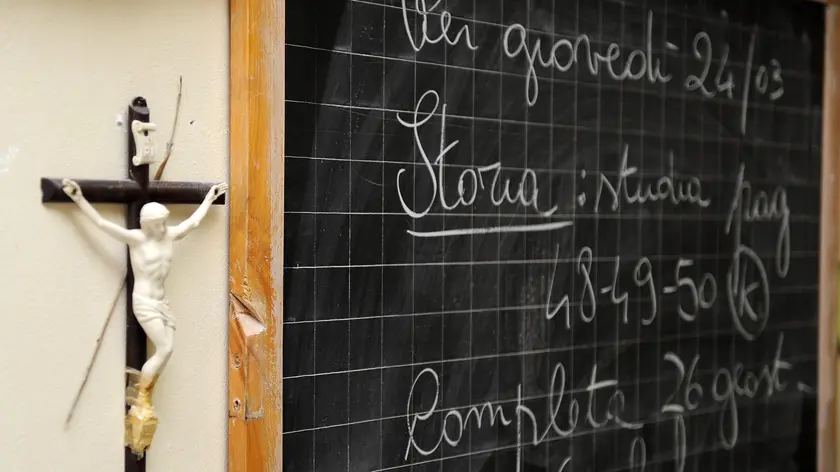 Per giovedì 24/03
Storia : studia pag
48-49-50 (K)
Completa